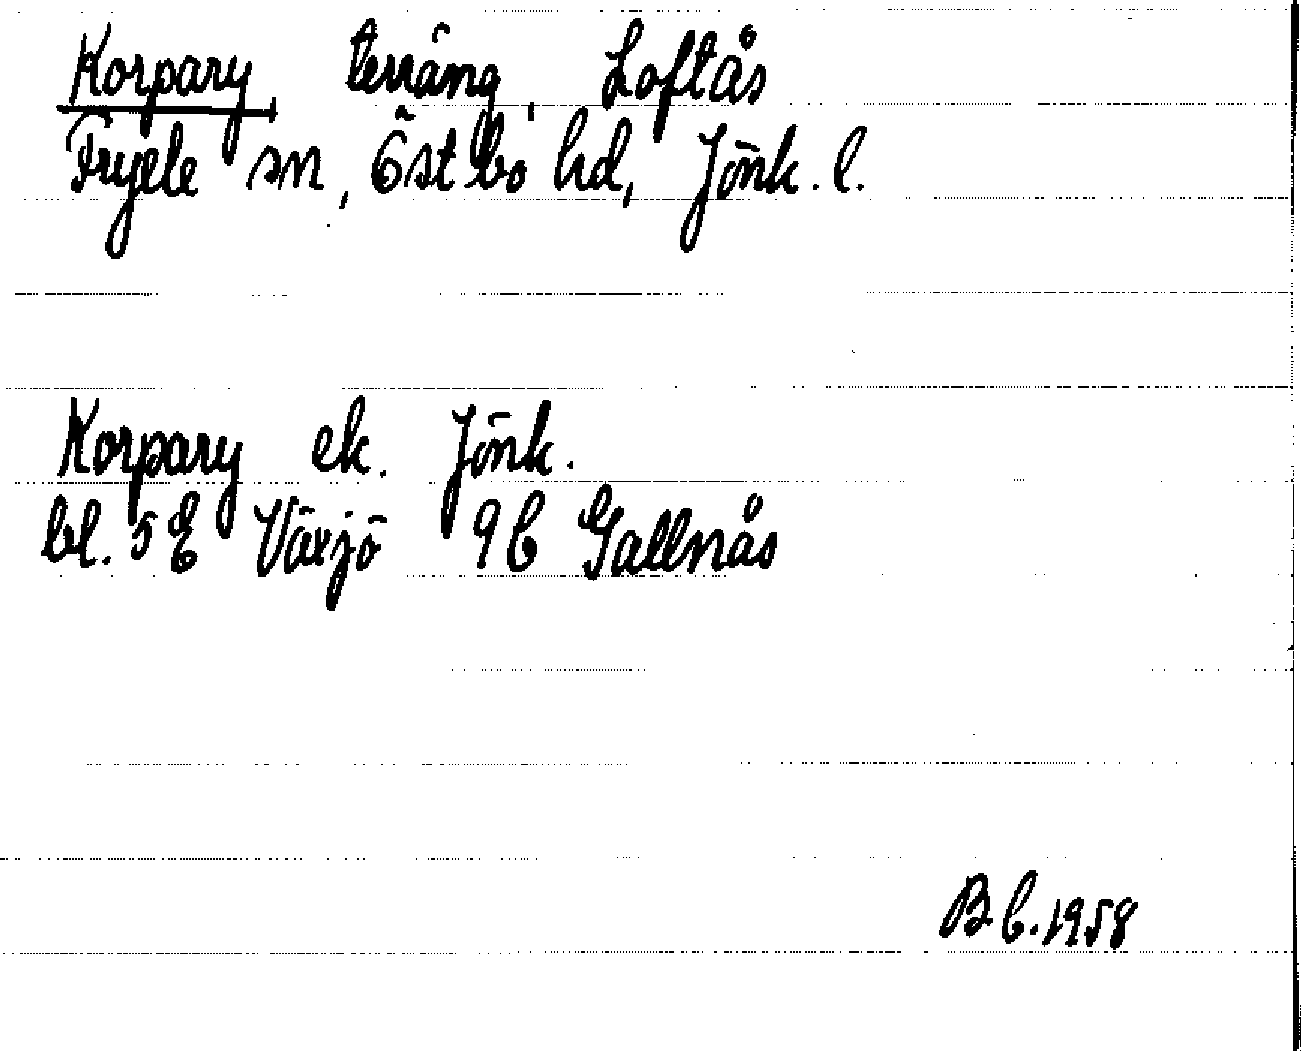 Korpary, terräng, Loftås
Fryele sn, Östbo hd, Jönk. l.
Korpary ek. Jönk.
bl. 5 E Växjö 9 b Gallnås
B.b. 1958